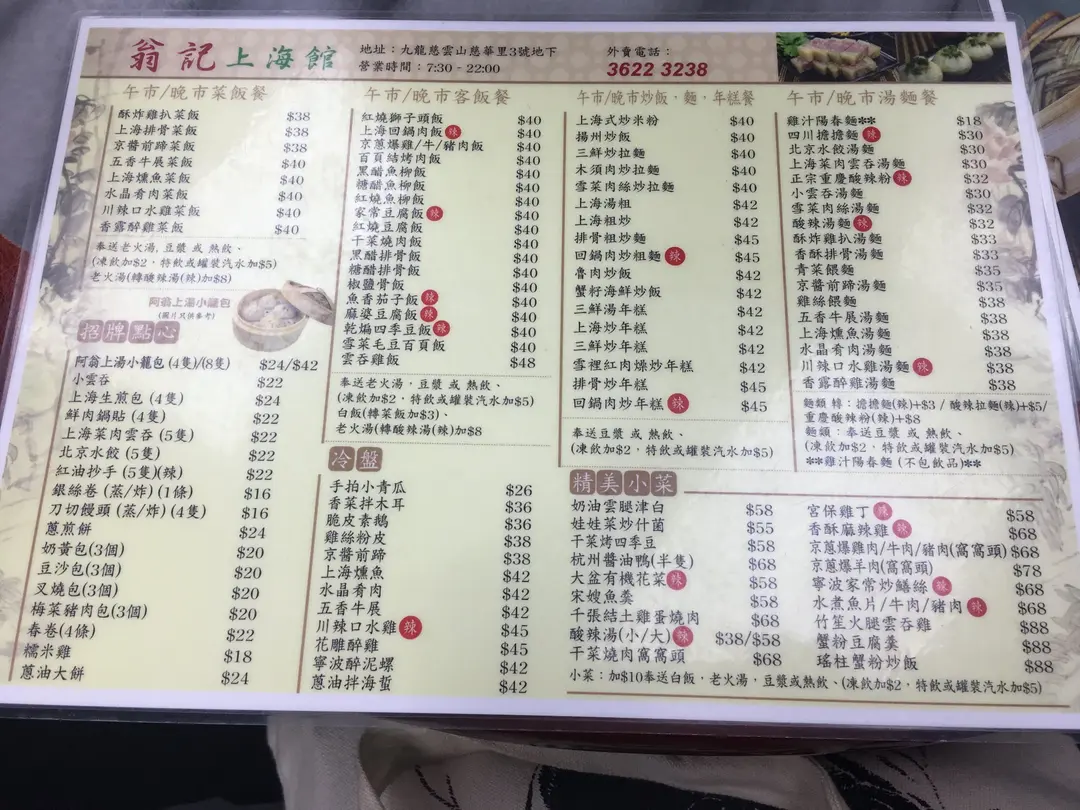 翁記上海館
地址：九龍慈雲山慈華里3號地下
營業時間：7:30 - 22:00
外賣電話：
3622 3238
午市/晚市菜飯餐
酥炸雞扒菜飯 $38
上海排骨菜飯 $38
京醬前蹄菜飯 $38
五香牛展菜飯 $40
上海燻魚菜飯 $40
水晶肴肉菜飯 $40
川辣口水雞菜飯 $40
香露醉雞菜飯 $40
奉送老火湯，豆漿 或 熱飲、
(凍飲加$2，特飲或罐裝汽水加$5)
老火湯(轉酸辣湯(辣)加$8)
阿翁上湯小籠包
(圖片只供參考)
招牌點心
阿翁上湯小籠包 (4隻)/(8隻) $24/$42
小雲吞 $22
上海生煎包 (4隻) $24
鮮肉鍋貼 (4隻) $22
上海菜肉雲吞 (5隻) $22
北京水餃 (5隻) $22
紅油抄手 (5隻)(辣) $22
銀絲卷 (蒸/炸) (1條) $16
刀切饅頭 (蒸/炸) (4隻) $16
蔥煎餅 $24
奶黃包(3個) $20
豆沙包(3個) $20
叉燒包(3個) $20
梅菜豬肉包(3個) $20
春卷(4條) $22
糯米雞 $18
蔥油大餅 $24
午市/晚市客飯餐
紅燒獅子頭飯 $40
上海回鍋肉飯 辣 $40
京蔥爆雞/牛/豬肉飯 $40
百頁結烤肉飯 $40
黑醋魚柳飯 $40
糖醋魚柳飯 $40
紅燒魚柳飯 $40
家常豆腐飯 辣 $40
紅燒豆腐飯 $40
干菜燒肉飯 $40
黑醋排骨飯 $40
糖醋排骨飯 $40
椒鹽骨飯 $40
魚香茄子飯 辣 $40
麻婆豆腐飯 辣 $40
乾煸四季豆飯 辣 $40
雪菜毛豆百頁飯 $40
雲吞雞飯 $48
奉送老火湯，豆漿 或 熱飲、
(凍飲加$2，特飲或罐裝汽水加$5)
白飯(轉菜飯加$3)、
老火湯(轉酸辣湯(辣)加$8
冷盤
手拍小青瓜 $26
香菜拌木耳 $36
脆皮素鵝 $36
雞絲粉皮 $38
京醬前蹄 $38
上海燻魚 $42
水晶肴肉 $42
五香牛展 $42
川辣口水雞 辣 $45
花雕醉雞 $45
寧波醉泥螺 $42
蔥油拌海蜇 $42
午市/晚市炒飯．麵．年糕餐
上海式炒米粉 $40
揚州炒飯 $40
三鮮炒拉麵 $40
木須肉炒拉麵 $40
雪菜肉絲炒拉麵 $40
上海湯粗 $42
上海粗炒 $42
排骨粗炒麵 $45
回鍋肉炒粗麵 辣 $45
魯肉炒飯 $42
蟹籽海鮮炒飯 $42
三鮮湯年糕 $42
上海炒年糕 $42
三鮮炒年糕 $42
雪裡紅肉燥炒年糕 $42
排骨炒年糕 $45
回鍋肉炒年糕 辣 $45
奉送豆漿 或 熱飲、
(凍飲加$2，特飲或罐裝汽水加$5)
午市/晚市湯麵餐
雞汁陽春麵** $18
四川擔擔麵 辣 $30
北京水餃湯麵 $30
上海菜肉雲吞湯麵 $30
正宗重慶酸辣粉 辣 $32
小雲吞湯麵 $30
雪菜肉絲湯麵 $32
酸辣湯麵 辣 $32
酥炸雞扒湯麵 $33
香酥排骨湯麵 $33
青菜餵麵 $35
京醬前蹄湯麵 $35
雞絲餵麵 $38
五香牛展湯麵 $38
上海燻魚湯麵 $38
水晶肴肉湯麵 $38
川辣口水雞湯麵 辣 $38
香露醉雞湯麵 $38
麵類 轉：擔擔麵(辣)+$3 / 酸辣拉麵(辣)+$5/
重慶酸辣粉(辣)+$8
麵類：奉送豆漿 或 熱飲、
(凍飲加$2．特飲或罐裝汽水加$5)
**雞汁陽春麵 (不包飲品)**
精美小菜
奶油雲腿津白 $58
娃娃菜炒什菌 $55
干菜烤四季豆 $58
杭州醬油鴨(半隻) $68
大盆有機花菜 辣 $58
宋嫂魚羹 $58
千張結土雞蛋燒肉 $68
酸辣湯(小/大) 辣 $38/$58
干菜燒肉窩窩頭 $68
宮保雞丁 辣 $58
香酥麻辣雞 辣 $68
京蔥爆雞肉/牛肉/豬肉(窩窩頭) $68
京蔥爆羊肉(窩窩頭) $78
寧波家常炒鱔絲 辣 $68
水煮魚片/牛肉/豬肉 辣 $68
竹笙火腿雲吞雞 $88
蟹粉豆腐羹 $88
瑤柱蟹粉炒飯 $88
小菜：加$10奉送白飯，老火湯，豆漿或熱飲、(凍飲加$2，特飲或罐裝汽水加$5)